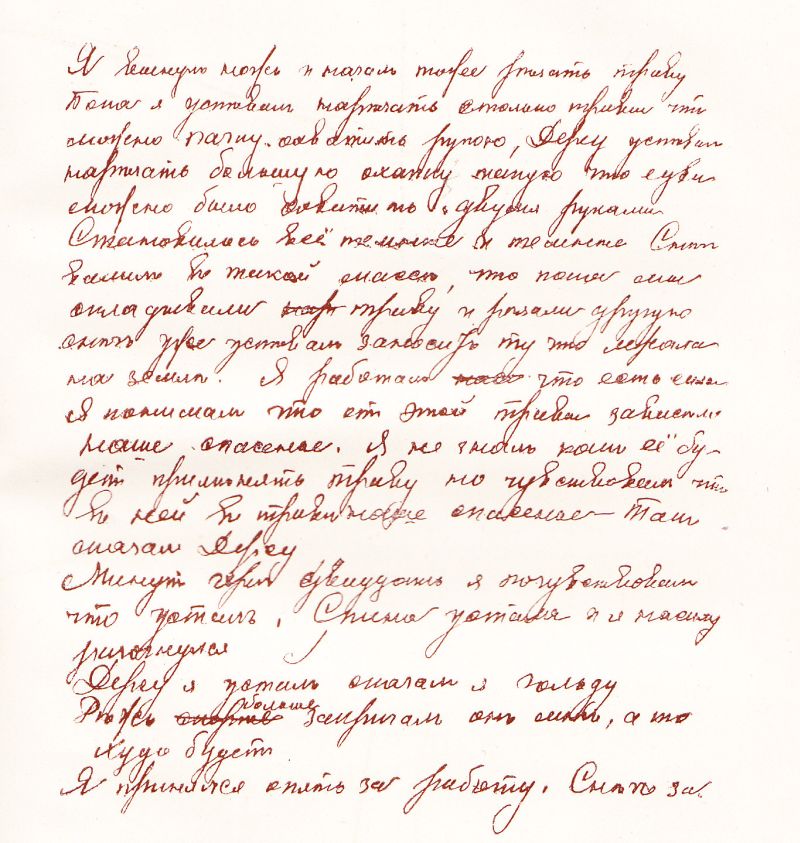 Я вынулъ ножъ и началъ тоже рѣзать траву
Пока я успѣвалъ нарѣзать столько травы что
можно пачку охватить рукою, Дерсу успѣвалъ
нарѣзать большую охапку такую что едва
можно было охватить двумя руками
Становилось всё темнѣе и темнѣе Снѣгъ
валилъ въ такой массѣ, что пока мы
складывали нар траву и рѣзали другую
снѣгъ уже успѣвалъ заносить ту что лежала
на землѣ. Я работалъ что есть силы
Я понималъ что отъ этой травы зависѣло
наше спасенье. Я не зналъ какъ её бу-
детъ примѣнять траву но чувствовалъ что
въ ней въ травѣ наше спасенье - такъ
сказалъ Дерсу
Минутъ черезъ двадцать я почувствовалъ
что усталъ. Спина устала и я насилу
разогнулся
Дерсу я усталъ сказалъ я гольду
Рѣжь больше закричалъ онъ мнѣ, а то
худо будетъ
Я принялся опять за работу. Снѣгъ за